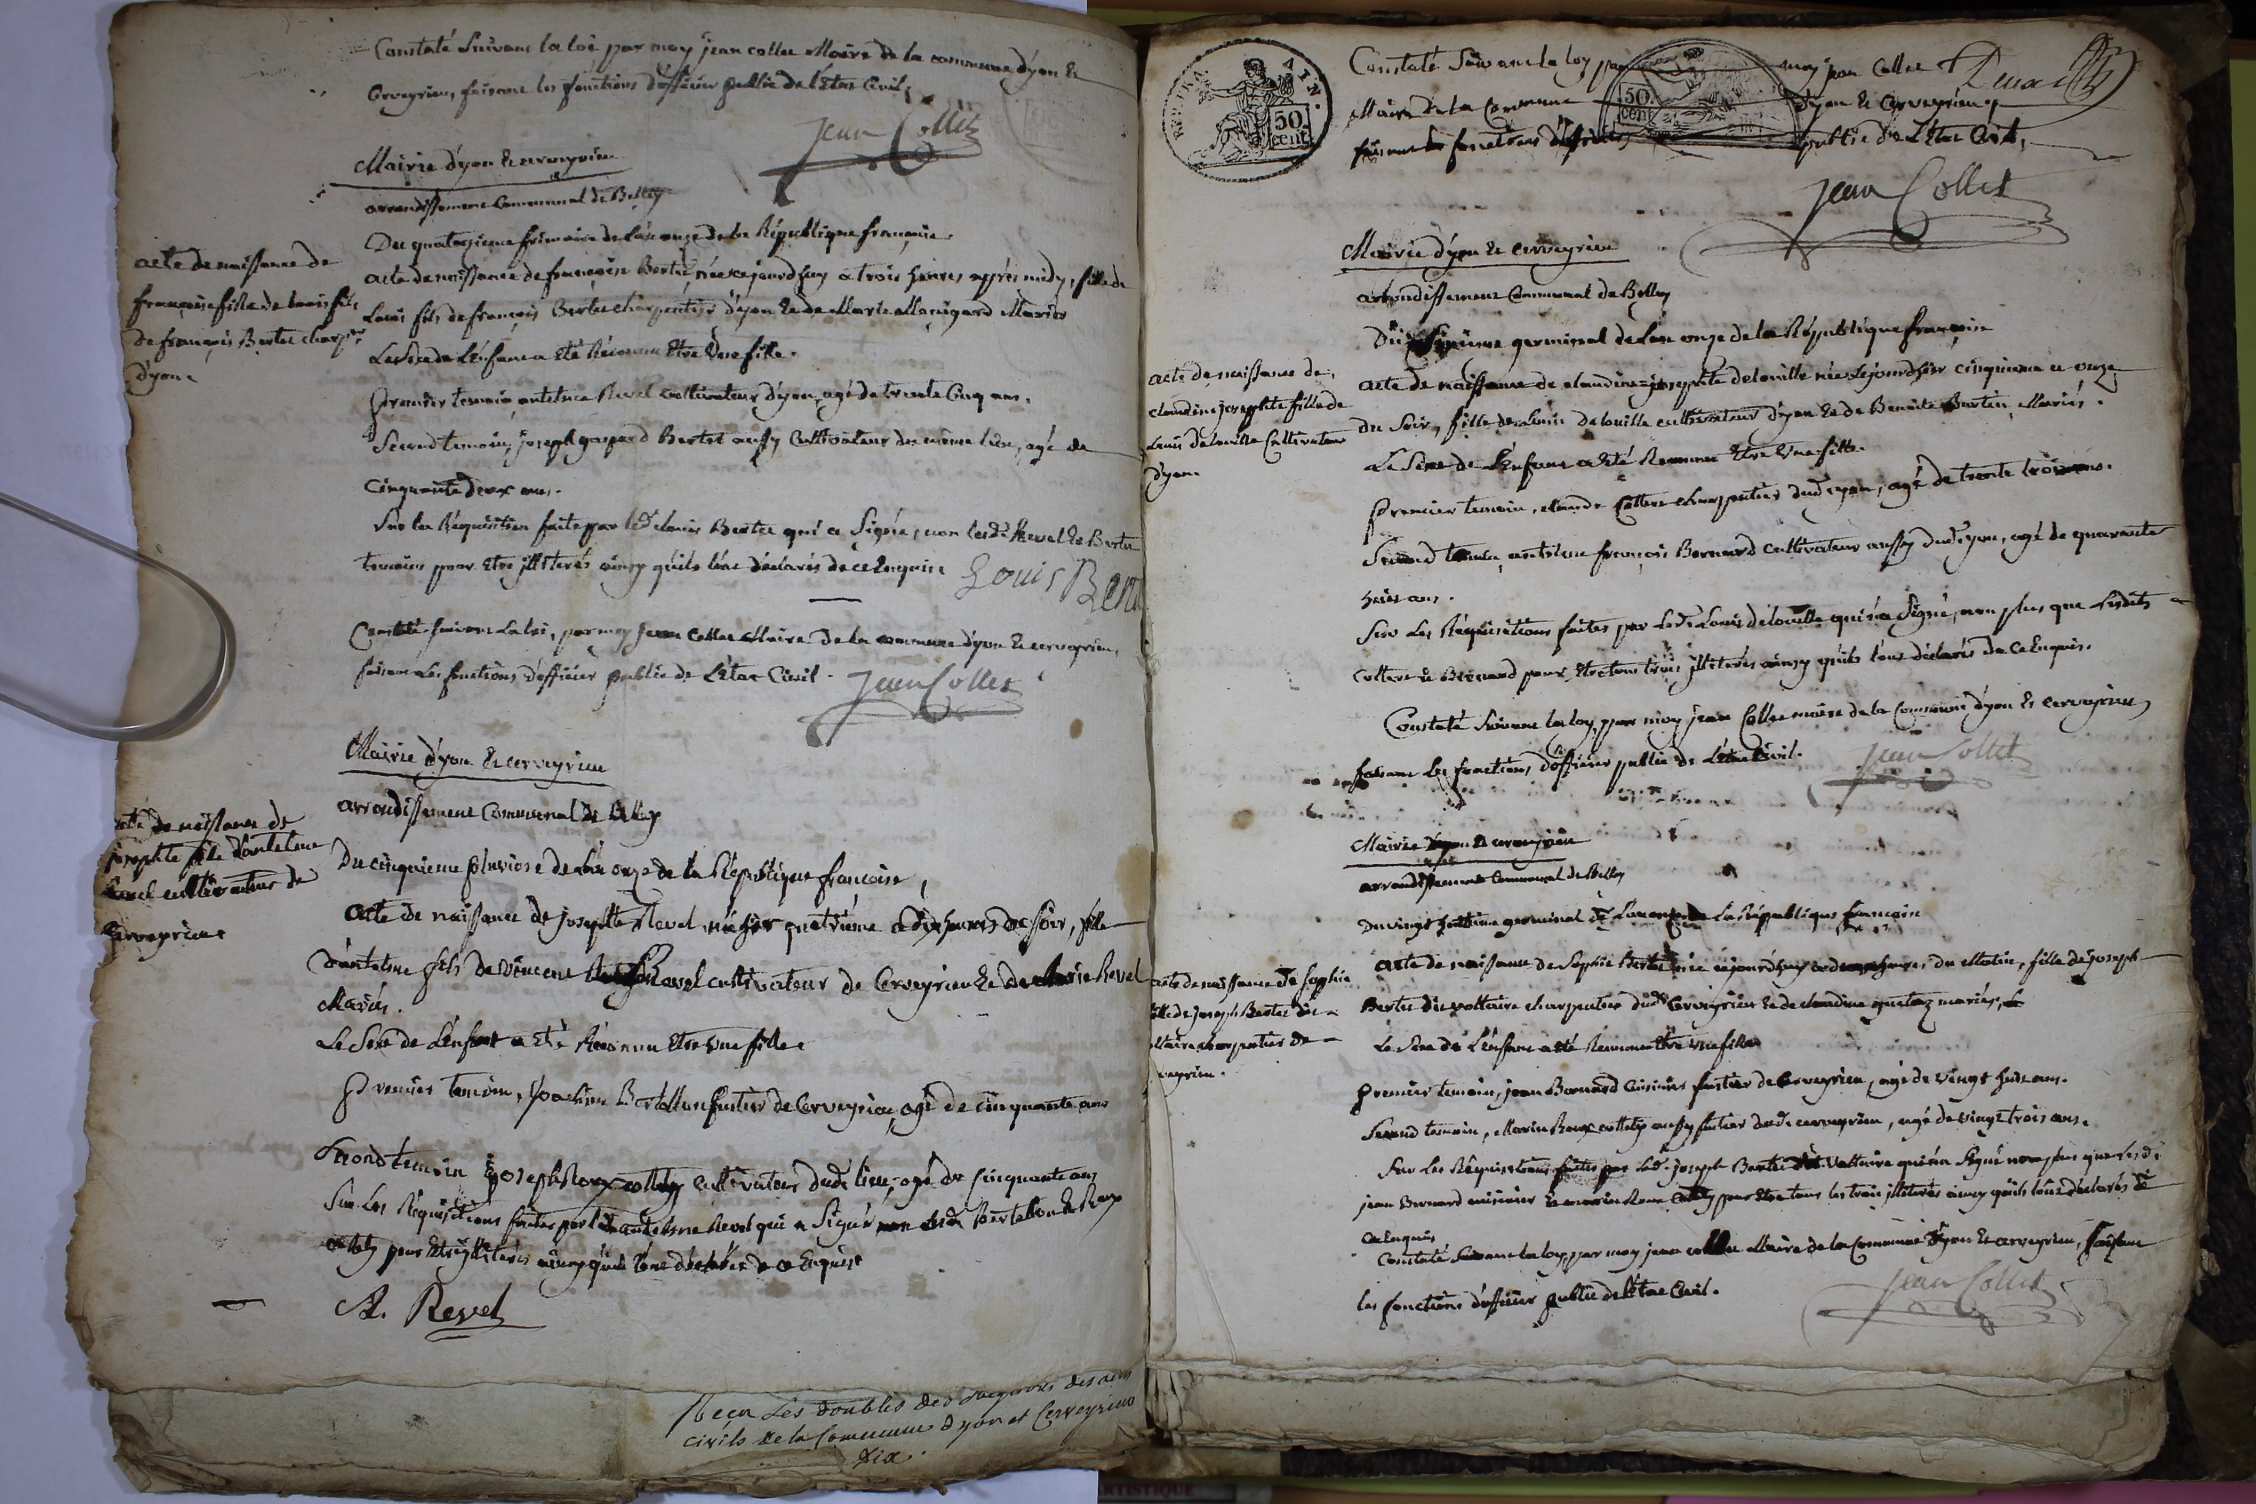 Constaté suivant la loi par moy jean collet Maire de la commune d'yon et
Cerveyrieu, faisant les fonctions d'officier public de l'état Civil,
Jean Collet
Mairie d'yon et cerveyrieu
arrondissement Communal de Belley
Du quatorzieme frimaire de l'an onze de la République françoise.
acte de naissance de
françoise fille de Louis fils
de françois Bertet charp.er
d'yon
acte de naissance de françoise Bertet, née cejourdhuy a trois heures après midy, fille de
Louis fils de françois Bertet charpentier d'yon et de Marie Marie
Le sexe de L'enfant a eté Réconnu Etre Une fille.
Premier temoin, antelme Revel cultivateur d'yon, agé de trente Cinq ans.
Second temoin, joseph gaspard Bertet aussy Cultivateur du même lieu, agé de
Cinquante deux ans.
Sur la Réquisition faite par led. Louis Bertet qui a signé, non lesd. Revel et Bertet
temoins pour Etre illiterés ainsy qu'ils l'ont déclarés de ce Enquis
Louis Bert
Constaté suivant La loi, par moy Jean Collet Maire de la commune d'yon et cerveyrieu,
faisant Les fonctions d'officier public de L'état Civil.
Jean Collet
Mairie d'yon et cerveyrieu
arrondissement Communal de Belley
Du cinquieme Pluviose de l'an onze de la République françoise,
acte de naissance de
josephte fille d'antelme
Revel cultivateur de
Cerveyrieu
acte de naissance de josephte Revel, née hier quatrieme a dix heures du soir, fille
d'antelme fils de vincent Revel cultivateur de Cerveyrieu et de Marie Revel
Mariés.
Le Sexe de L'enfant a Eté Réconnu Etre Une fille
Premier temoin, joachim Bertellon fustier de Cerveyrieu, agé de cinquante ans
Second temoin joseph Roux cultivateur dud. lieu, agé de cinquante ans
Sur Les Réquisitions faites par led. antelme Revel qui a Signé non lesd. Bertellon et Roux
pour Etre illiterés ainsy qu'ils l'ont déclarés de ce Enquis
A. Revel
Reçu Les doubles des des actes
civils de la Commune d'yon et Cerveyrieu
Constaté Suivant la loy par moy jean Collet
REP. FRA. 50 cent.
50 cent.
Maire de la Commune d'yon et Cerveyrieu
faisant les fonctions d'officier public de L'état Civil,
Jean Collet
Mairie d'yon et cerveyrieu
arrondissement Communal de Belley
Du germinal de L'an onze de la République françoise
acte de naissance de
claudine josephte fille de
Louis delouille Cultivateur
d'yon
acte de naissance de claudine josephte delouille née le jourd'hier cinquieme a onze
du Soir, fille de Louis delouille cultivateur d'yon et de Benoite Bertin, Mariés.
Le Sexe de L'enfant a Eté Reconnu Etre Une fille.
Premier temoin, claude charpentier dud. yon, agé de trente trois ans.
Second temoin antelme françois Bernard cultivateur aussy dud. yon, agé de quarante
huit ans.
Sur Les Réquisitions faites par Led. Louis delouille qui n'a Signé, non plus que Lesdits
et Bernard pour Etre tous trois illiterés ainsy qu'ils l'ont déclarés de Ce Enquis.
Constaté suivant la loy, par moy jean Collet maire de la Commune d'yon et cerveyrieu
faisant les fonctions d'officier public de L'état Civil.
Jean Collet
Mairie d'yon et cerveyrieu
arrondissement Communal de Belley
Du vingt huitieme germinal de L'an onze de La République françoise
acte de naissance de Sophie
fille de joseph Bertet dit
voltaire charpentier de
cerveyrieu.
acte de naissance de Sophie Bertet née cejourdhuy a heures du Matin, fille de joseph
Bertet dit voltaire charpentier dud. Cerveyrieu et de claudine mariés,
Le Sexe de L'enfant a eté Reconnu Etre Une fille
Premier temoin, jean Bernard fustier de Cerveyrieu, agé de vingt huit ans.
Second temoin, Marin Roux aussy fustier dud. cerveyrieu, agé de vingt trois ans.
Sur Les Réquisitions faites par led. joseph Bertet dit Voltaire qui n'a Signé non plus que lesd.
jean Bernard et marin Roux pour Etre tous les trois illiterés ainsy qu'ils l'ont déclarés de
ce Enquis
Constaté Suivant la loy, par moy jean collet Maire de la Commune d'yon et cerveyrieu, faisant
les fonctions d'officier public de l'état Civil.
Jean Collet